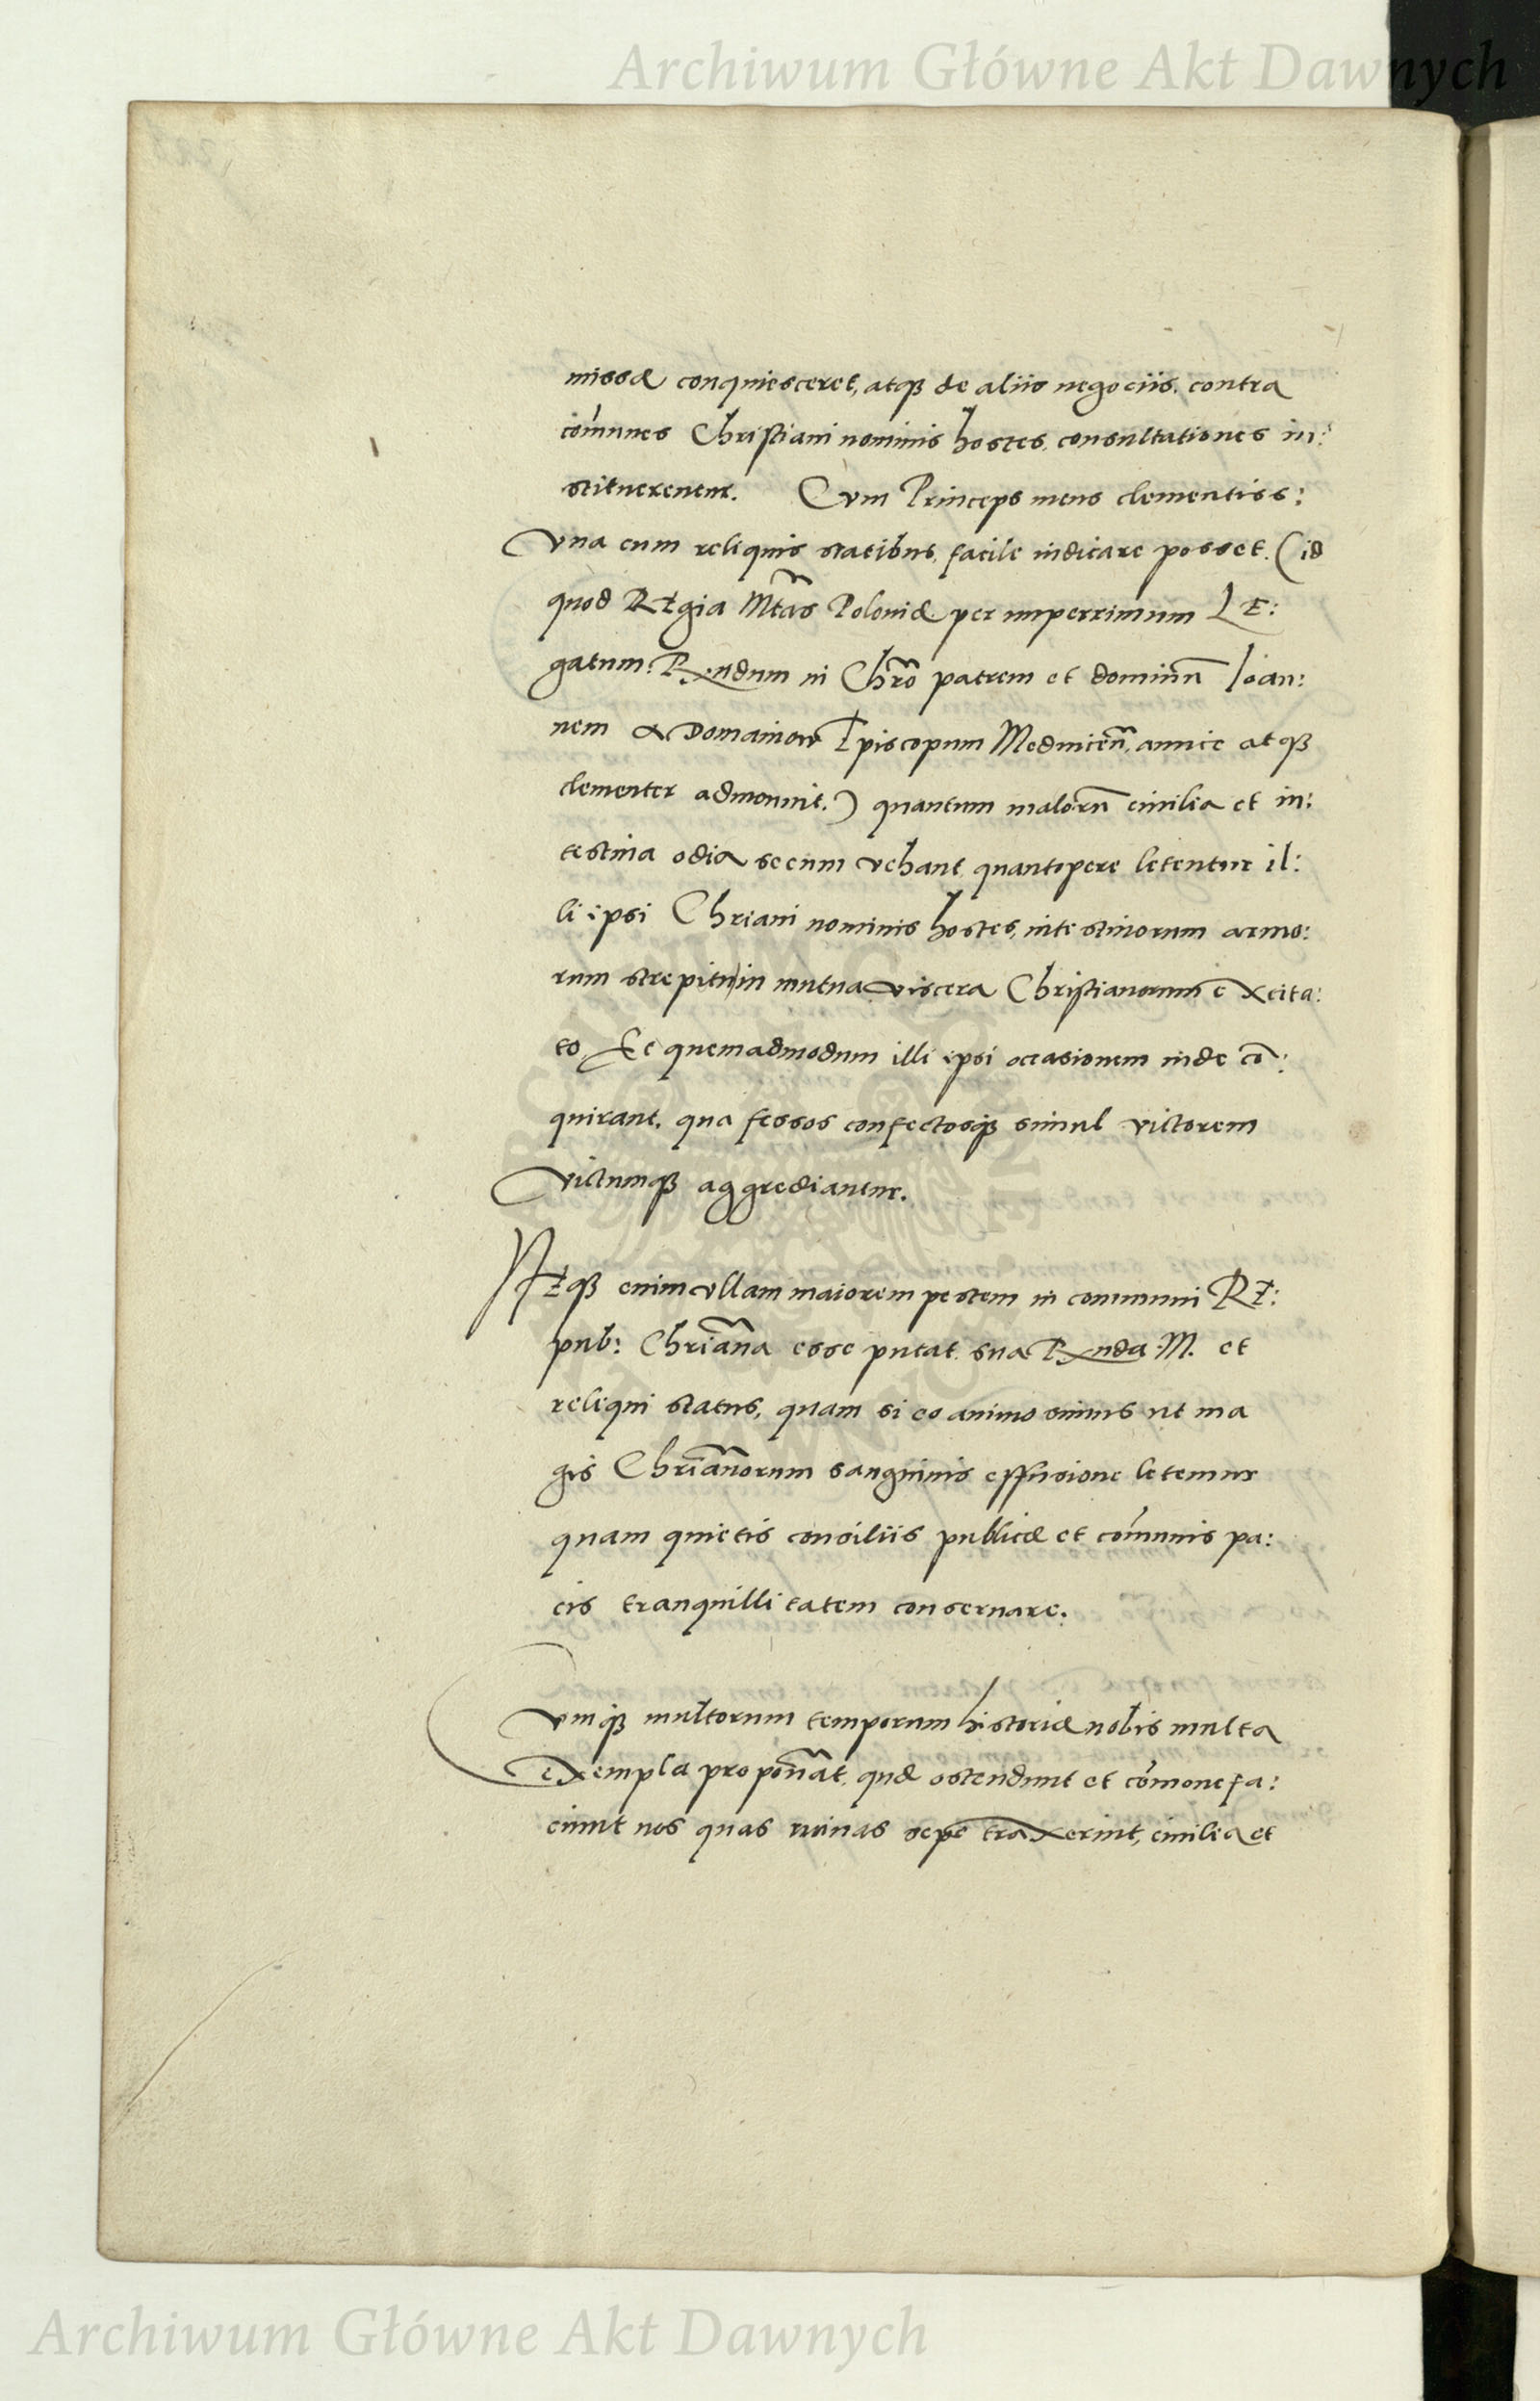 Archiwum Główne Akt Dawnych
missæ conquiesceret, atqȝ de aliis negociis. contra
com̄unes Christiani nominis hostes. consultationes in:
stituerentur. Cvm Princeps meus clementiss:
vna cum reliquis statibus. facile iudicare posset. (id
quod REgia Mtãs Poloniæ per nuperrimum LE:
gatum. Rendum in Chrõ patrem et dominũ Ioan:
nem a Domainow Episcopum Mednicen̄. amice atqȝ
clementer admonuit.) quantum malorũ ciuilia et in:
testina odia secum vehant. quantopere letentur il:
li ipsi Chriani nominis hostes, intestinorum armo:
rum strepitu in mutua viscera Christianorum excita:
to. Et quemadmodum illi ipsi occasionem inde cõ:
quirant. qua fessos confectosqȝ simul victorem
victumqȝ aggrediantur.
NEqȝ enim vllam maiorem pestem in communi RE:
pub: Chriãna esse putat. sua Rnda. M. et
reliqui status, quam si eo animo simus ut ma
gis Chriãnorum sanguinis effusione letemur
quam quietis consiliis publicæ et com̄unis pa:
cis tranquillitatem conseruare.
Cvmqȝ multorum temporum historiæ nobis multa
exempla proponãt. quæ ostendunt et com̄onefa:
ciunt nos quas ruinas sepe traxerint, ciuilia et
Archiwum Główne Akt Dawnych